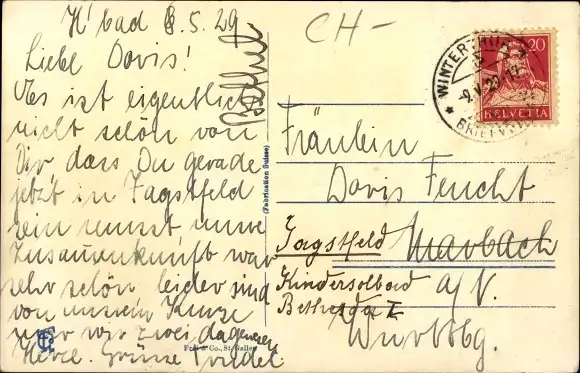 H'bad 8.5.29
Liebe Doris!
Es ist eigentlich
nicht schön von
Dir dass Du gerade
jetzt in Jagstfeld
sein musst unsre
Zusammenkunft war
sehr schön leider sind
von unsrem Kurze
nur wir zwei dagewesen
Herzl. Grüsse
CH-
Fräulein
Doris Feucht
Marbach
a/N.
Württbg.
Jagstfeld
Kindersolbad
Bethesda I
(Fabrication Suisse)
Frei & Co., St. Gallen
WINTERTHUR
9.V.29
BRIEFVERSAND
20
HELVETIA